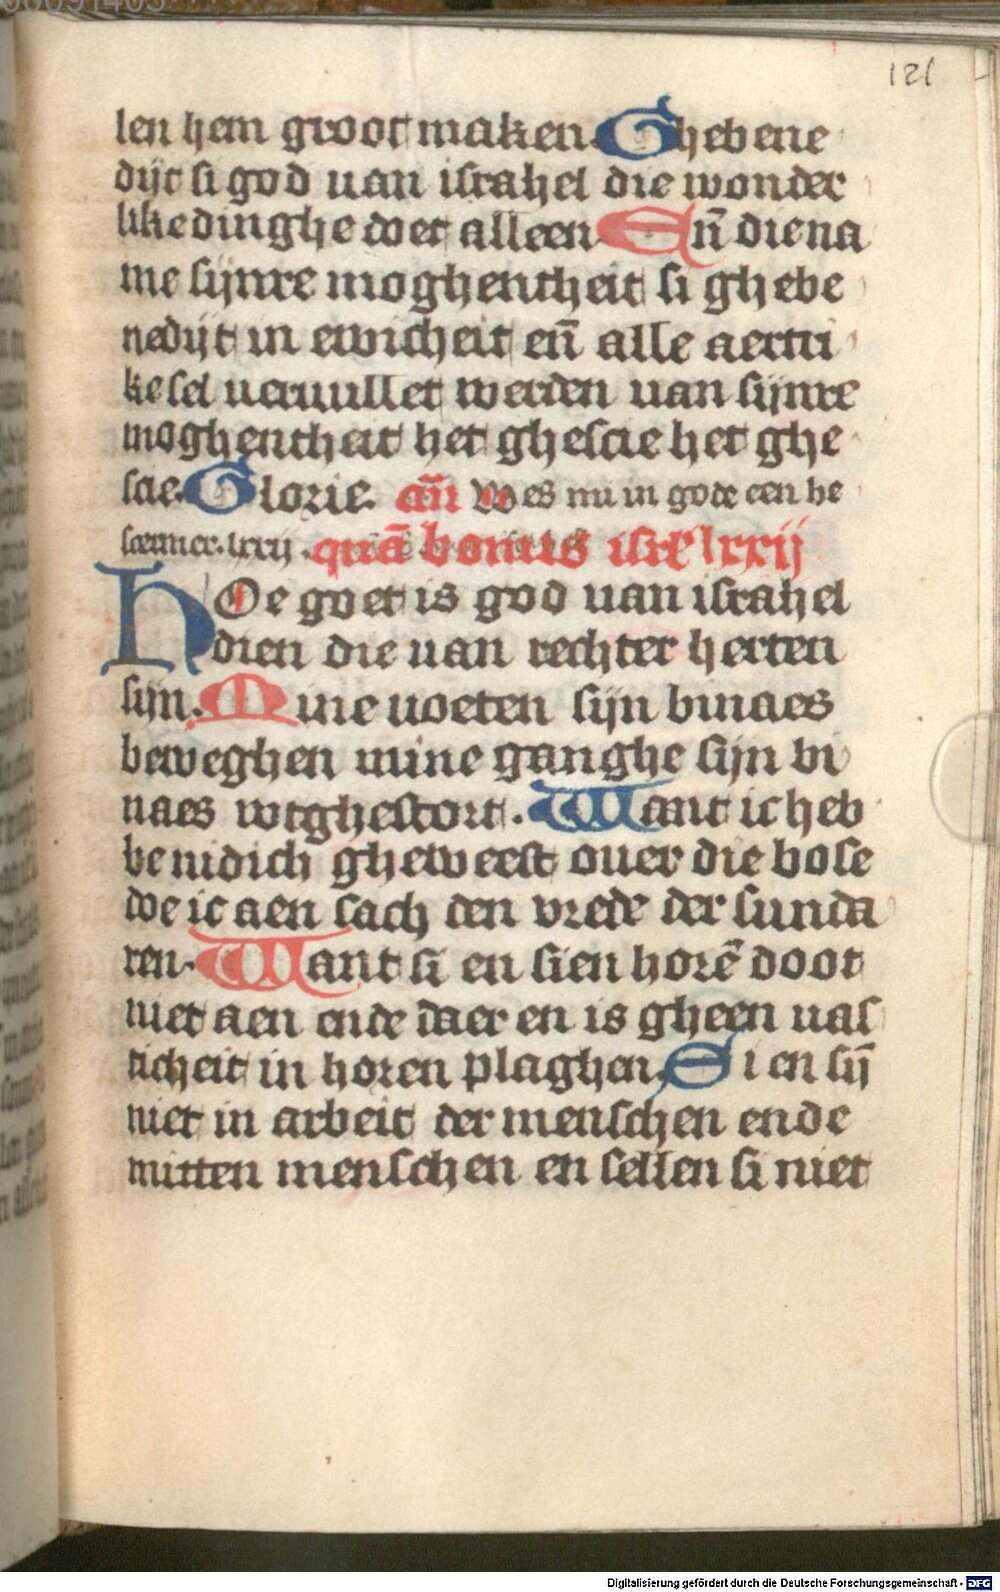 121
len hem groot maken. Ghebene
dijt si god uan israhel die wonder
like dinghe doet alleen. En̄ die na
me sijnre moghentheit si ghebe
nedijt in ewicheit en̄ alle aertri
ke sel ueruullet werden uan sijnre
moghentheit het ghescie het ghe
scie. Glorie. an̄ Wes nu in gode een be
scermer. lxxij. quā bonus isrl̄ lxxij
HOe goet is god uan israhel
dien die uan rechter herten
sijn. Mine uoeten sijn binaes
beweghen mine ganghe sijn bi
naes wtghestort. Want ic heb
be nidich gheweest ouer die bose
doe ic aen sach den vrede der sunda
ren. Want si en sien horē doot
niet aen ende daer en is gheen uas
ticheit in horen plaghen. Si en sij̄
niet in arbeit der menschen ende
mitten menschen en sellen si niet
Digitalisierung gefördert durch die Deutsche Forschungsgemeinschaft - DFG